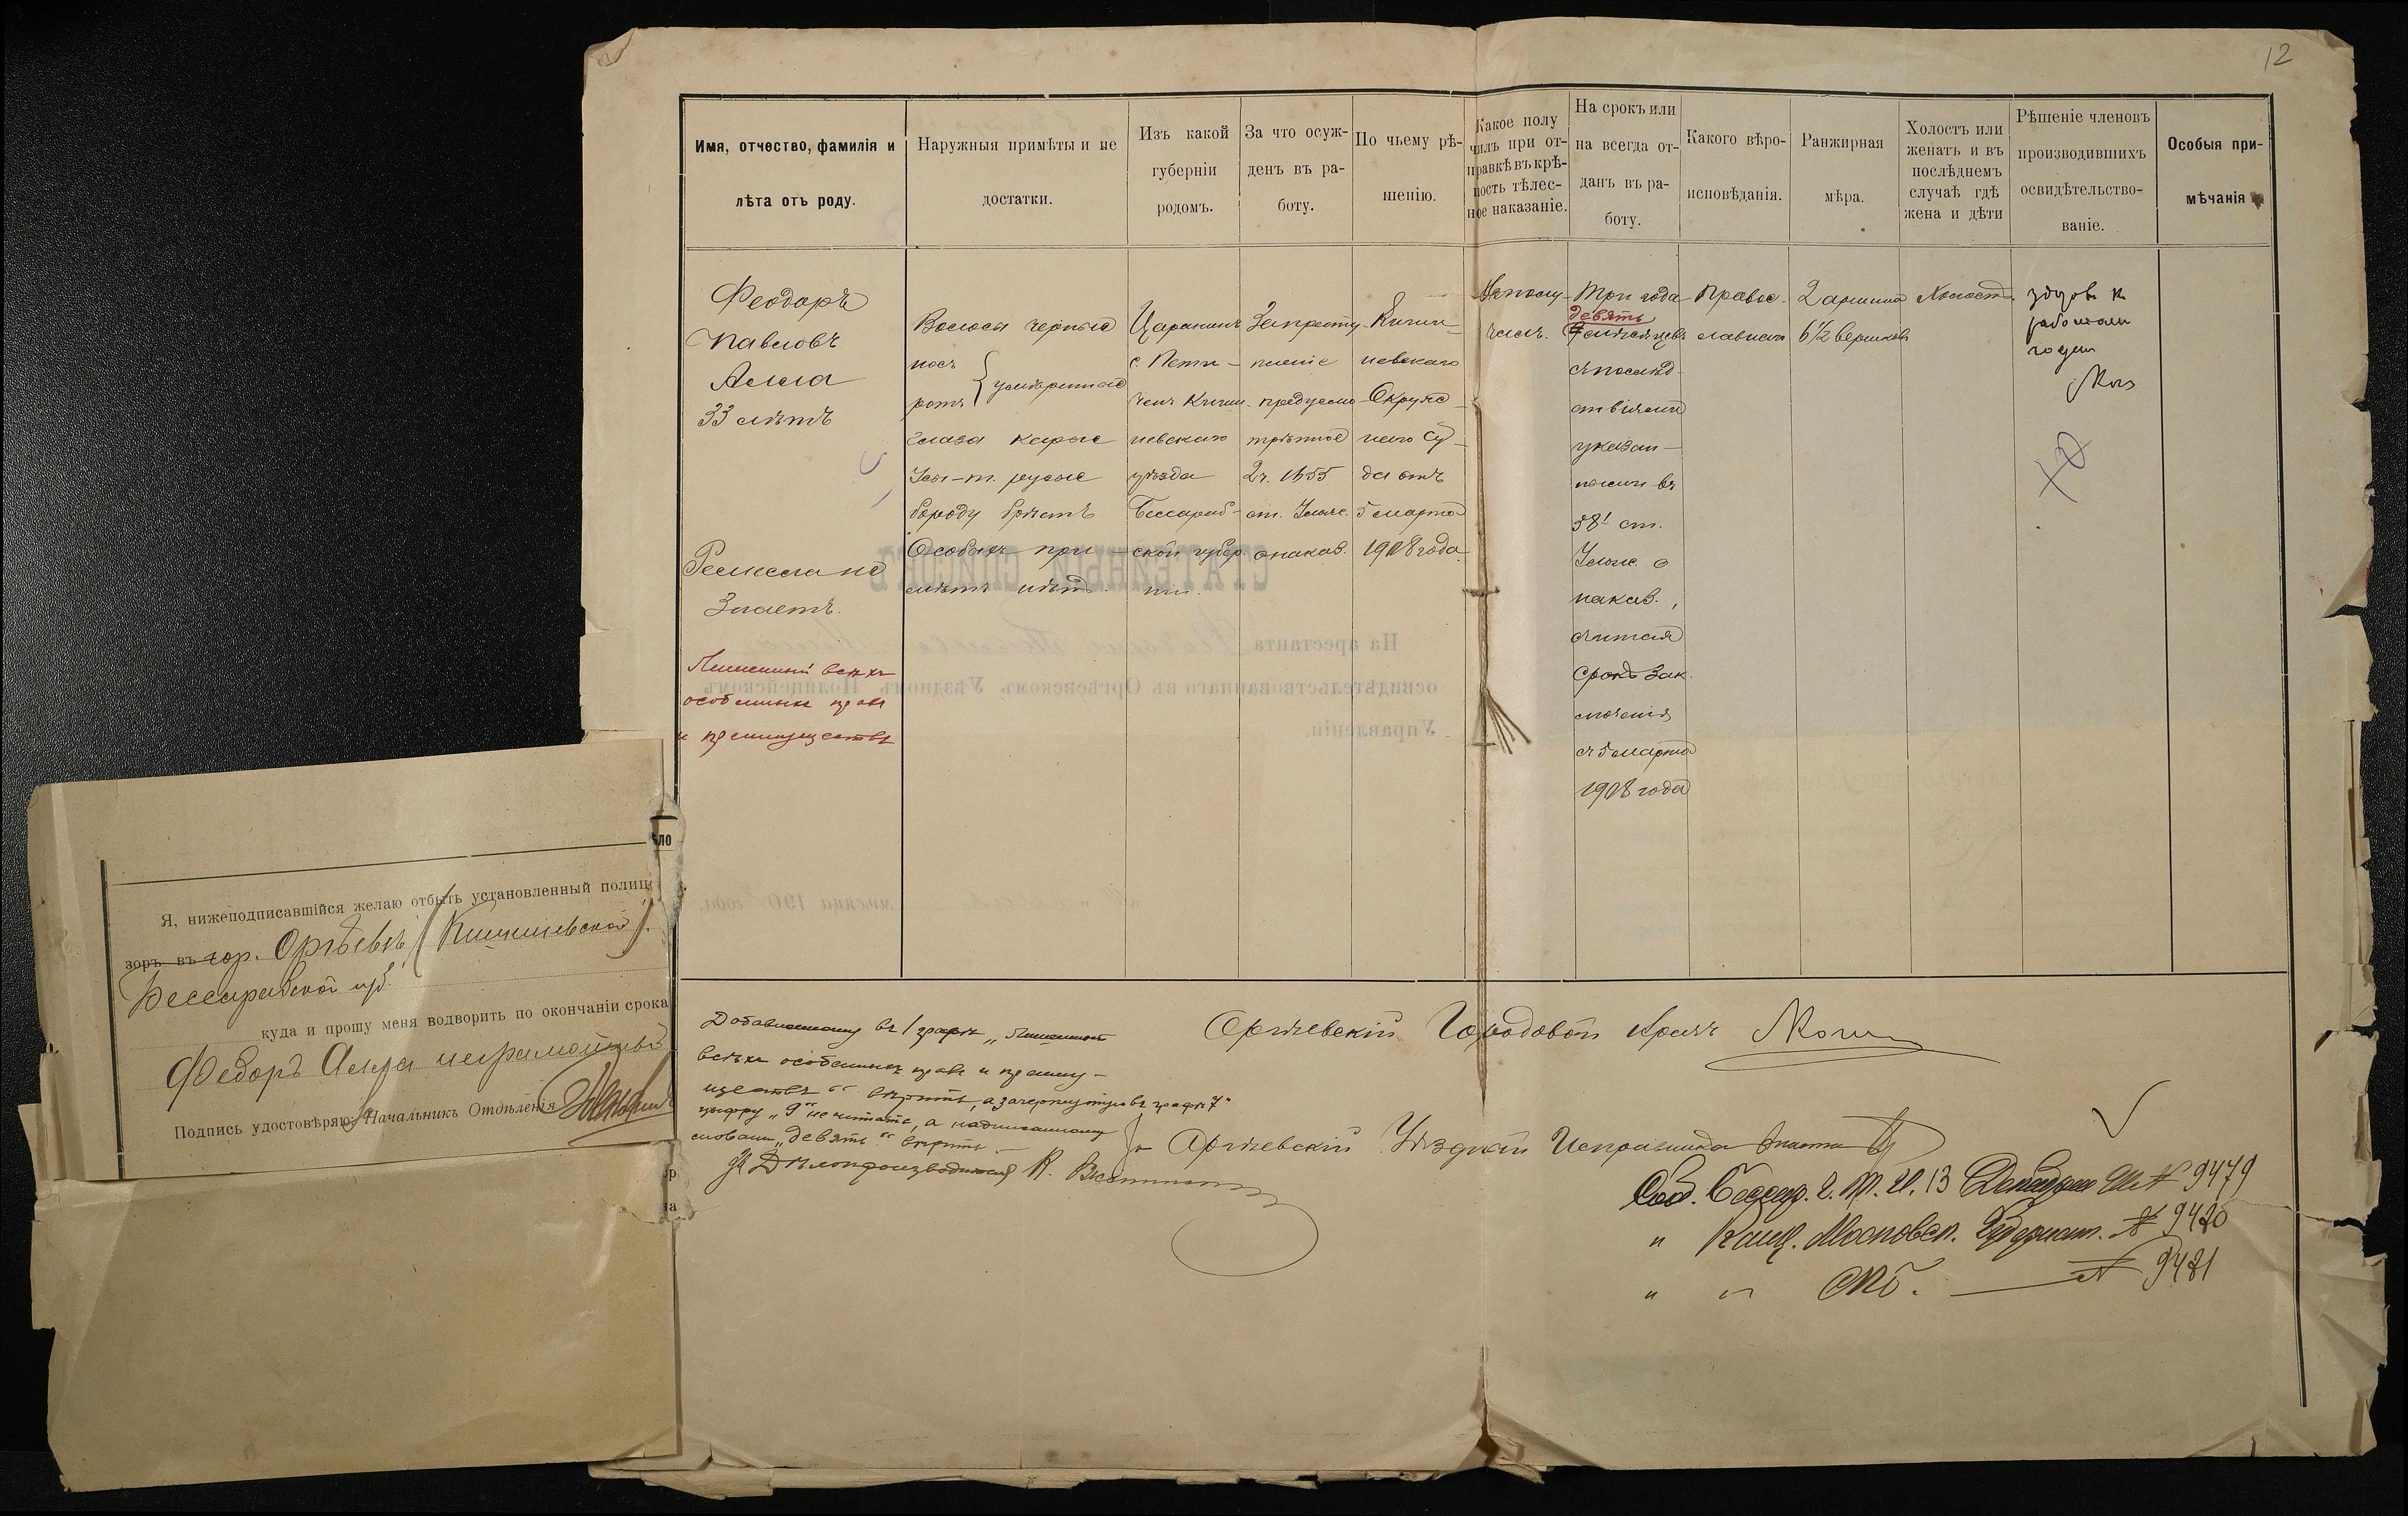 12
Имя, отчество, фамилія и
лѣта отъ роду.
Наружныя примѣты и не
достатки.
Изъ какой
губерніи
родомъ.
За что осуж-
денъ въ ра-
боту.
По чьему рѣ-
шенію.
Какое полу
чилъ при от-
правкѣ въ крѣ-
пость тѣлес-
ное наказаніе.
На срокъ или
на всегда от-
данъ въ ра-
боту.
Какого вѣро-
исповѣданія.
Ранжирная
мѣра.
Холостъ или
женатъ и въ
послѣднемъ
случаѣ гдѣ
жена и дѣти
Рѣшеніе членовъ
производившихъ
освидѣтельство-
ваніе.
Особыя при-
мѣчанія
Феодоръ
Павловъ
33 лѣтъ
Ремесла не
Знаетъ.
Лишенный всѣхъ
особенныхъ правъ
и преимуществъ
Волосы черные
носъ
ротъ
умѣренные
глаза каріе
Усы - т. русые
бороду брѣетъ
Особыхъ при-
мѣтъ нѣтъ.
Царанинъ
с. Пети-
ченъ Кишин-
невскаго
уѣзда
Бессараб-
ской губер-
ніи.
За престу-
пленіе
предусмо-
трѣнное
2 ч. 1455
ст. Улож.
о наказ.
Кишин-
невскаго
Окруж-
наго Су-
да отъ
5 марта
1908 года
Не полу-
чилъ.
Три года
девять
9 мѣсяцевъ
съ послѣд-
ствіями
указан-
ными въ
581 ст.
Улож. о
наказ.,
считая
срокъ зак-
люченія
съ 5 марта
1908 года
Правос-
лавнаго
2 аршина
6 1/2 вершковъ
Холостъ.
здоровъ къ
работамъ
годенъ
СТАТЕЙНЫЙ СПИСОКЪ
На арестанта
освидѣтельствованнаго въ Оргѣевскомъ Уѣздномъ Полицейскомъ
Управленіи.
мѣсяца 190 года.
ѣло
Я, нижеподписавшійся желаю отбыть установленный полиц
зоръ въ гор. Оргѣевѣ (Кишиневской).
Бессарабской губ.
куда и прошу меня водворить по окончаніи срока
Федоръ неграмотный
Подпись удостовѣряю: Начальникъ Отдѣленія
Добавленному въ 1 графѣ „Лишенный
всѣхъ особенныхъ правъ и преиму-
ществъ“ вѣрить, а зачеркнутую въ графѣ 7
цифру „9“ не читать, а надписанному
словами „девять“ вѣрить.
Дѣлопроизводителя К.
Оргѣевскій Городовой Врачъ
Оргѣевскій Уѣздный Исправникъ
Сооб. Бессар. Г. Т. И. 13 Декабря № 9479
" Канц. Московск. Губернат. № 9480
" " СПб. № 9481